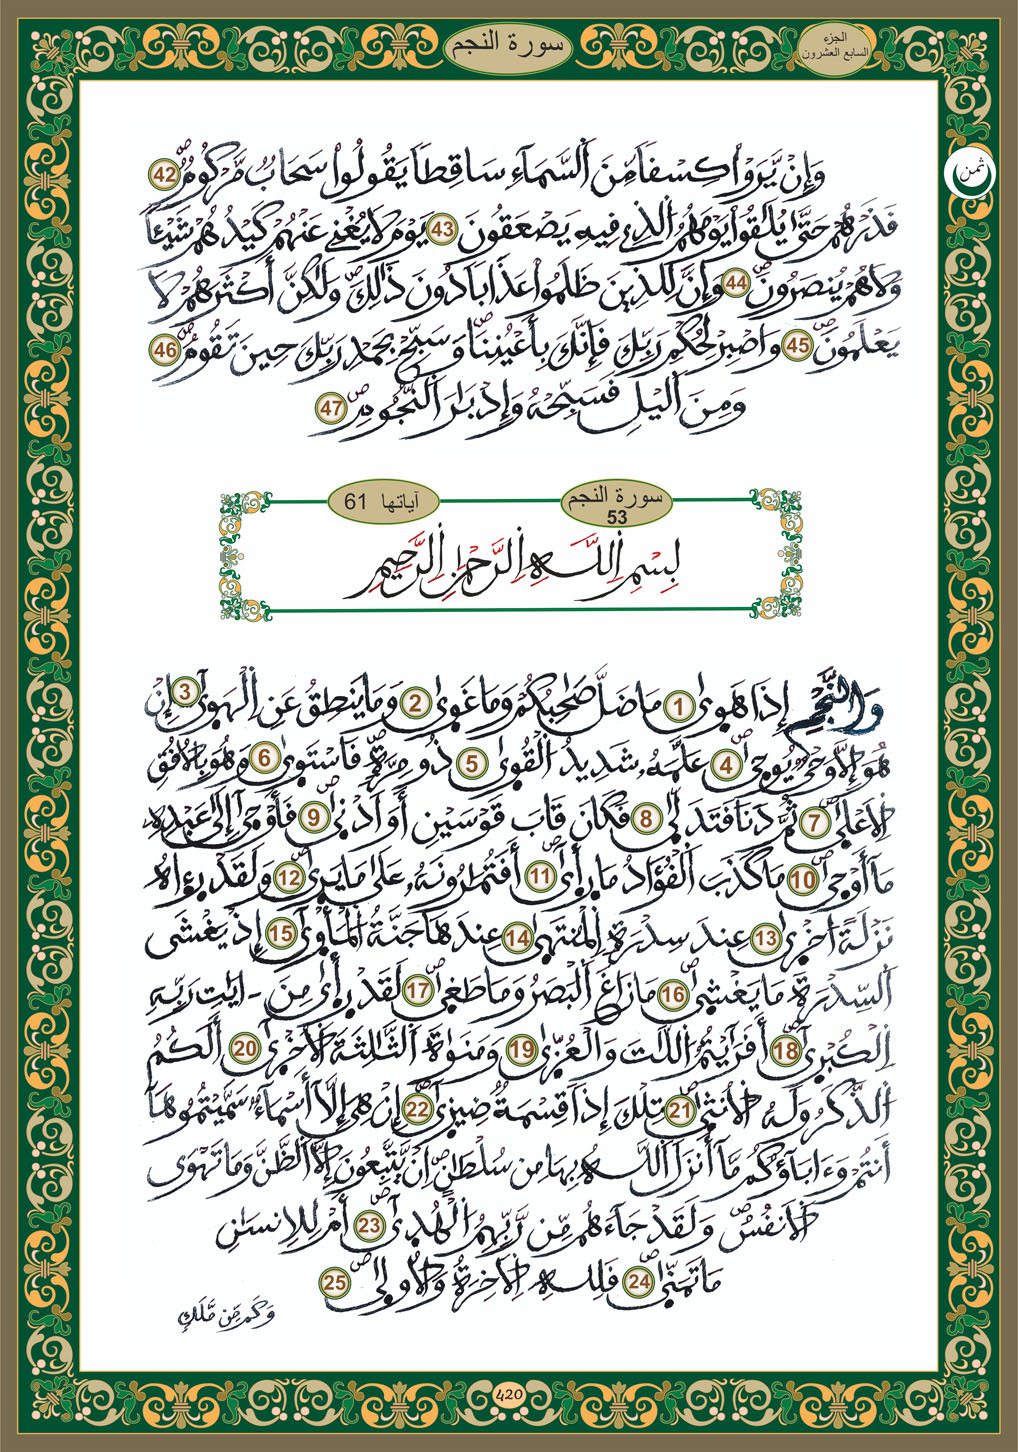 سورة النجم
الجزء
السابع العشرون
ثمن
وَإِنْ يَّرَوْاْ كِسْفاٗ مِّنَ اَ۬لسَّمَآءِ سَاقِطاٗ يَقُولُواْ سَحَابٞ مَّرْكُومٞۖ 42
فَذَرْهُمْ حَتَّىٰ يُلَٰقُواْ يَوْمَهُمُ اُ۬لذِے فِيهِ يَصْعَقُونَ 43 يَوْمَ لَا يُغْنِے عَنْهُمْ كَيْدُهُمْ شَيْـٔاٗ
وَلَا هُمْ يُنصَرُونَۖ 44 وَإِنَّ لِلذِينَ ظَلَمُواْ عَذَاباٗ دُونَ ذَٰلِكَۖ وَلَٰكِنَّ أَكْثَرَهُمْ لَا
يَعْلَمُونَۖ 45 وَاصْبِرْ لِحُكْمِ رَبِّكَ فَإِنَّكَ بِأَعْيُنِنَاۖ وَسَبِّحْ بِحَمْدِ رَبِّكَ حِينَ تَقُومُۖ 46
وَمِنَ اَ۬ليْلِ فَسَبِّحْهُ وَإِدْبَٰرَ اَ۬لنُّجُومِۖ 47
سورة النجم
53
آياتها 61
بِسْمِ اِ۬للَّهِ اِ۬لرَّحْمَٰنِ اِ۬لرَّحِيمِ
وَالنَّجْمِ إِذَا هَوَىٰ 1 مَا ضَلَّ صَٰحِبُكُمْ وَمَا غَوَىٰ 2 وَمَا يَنطِقُ عَنِ اِ۬لْهَوَىٰٓ 3 إِنْ
هُوَ إِلَّا وَحْيٞ يُوحَىٰ 4 عَلَّمَهُۥ شَدِيدُ اُ۬لْقُوَىٰ 5 ذُو مِرَّةٖۖ فَاسْتَوَىٰ 6 وَهُوَ بِالُافُقِ
اِ۬لَاعْلَىٰۖ 7 ثُمَّ دَنَا فَتَدَلَّىٰ 8 فَكَانَ قَابَ قَوْسَيْنِ أَوَ اَدْنَىٰۖ 9 فَأَوْحَىٰٓ إِلَىٰ عَبْدِهِۦ
مَآ أَوْحَىٰۖ 10 مَا كَذَبَ اَ۬لْفُؤَادُ مَا رَأَىٰٓۖ 11 أَفَتُمَٰرُونَهُۥ عَلَىٰ مَا يَرَىٰۖ 12 وَلَقَدْ رَءَاهُ
نَزْلَةً اُخْرَىٰ 13 عِندَ سِدْرَةِ اِ۬لْمُنتَهَىٰ 14 عِندَهَا جَنَّةُ اُ۬لْمَأْوَىٰٓ 15 إِذْ يَغْشَى
اَ۬لسِّدْرَةَ مَا يَغْشَىٰۖ 16 مَا زَاغَ اَ۬لْبَصَرُ وَمَا طَغَىٰۖ 17 لَقَدْ رَأَىٰ مِنَ اٰيَٰتِ رَبِّهِ
اِ۬لْكُبْرَىٰٓۖ 18 أَفَرَٰٓيْتُمُ اُ۬للَّٰتَ وَالْعُزَّىٰ 19 وَمَنَوٰةَ اَ۬لثَّالِثَةَ اَ۬لُاخْرَىٰٓ 20 أَلَكُمُ
اُ۬لذَّكَرُ وَلَهُ اُ۬لُانث۪ىٰ 21 تِلْكَ إِذاٗ قِسْمَةٞ ضِيزَىٰٓۖ 22 إِنْ هِيَ إِلَّآ أَسْمَآءٞ سَمَّيْتُمُوهَآ
أَنتُمْ وَءَابَآؤُكُم مَّآ أَنزَلَ اَ۬للَّهُ بِهَا مِن سُلْطَٰنٍۖ اِنْ يَّتَّبِعُونَ إِلَّا اَ۬لظَّنَّ وَمَا تَهْوَى
اَ۬لَانفُسُۖ وَلَقَدْ جَآءَهُم مِّن رَّبِّهِمُ اُ۬لْهُدَىٰٓۖ 23 أَمْ لِلِانسَٰنِ
مَا تَمَنَّىٰۖ 24 فَلِلهِ اِ۬لَاخِرَةُ وَالُاولَىٰۖ 25
وَكَم مِّن مَّلَكٖ
420